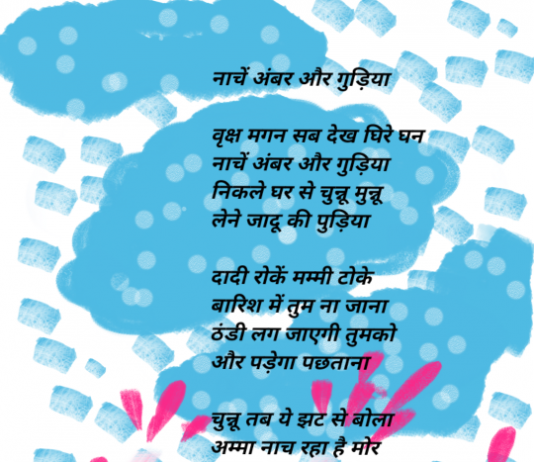 नाचें अंबर और गुड़िया
वृक्ष मगन सब देख घिरे घन
नाचें अंबर और गुड़िया
निकले घर से चुन्नू मुन्नू
लेने जादू की पुड़िया
दादी रोकें मम्मी टोके
बारिश में तुम ना जाना
ठंडी लग जाएगी तुमको
और पड़ेगा पछताना
चुन्नू तब ये झट से बोला
अम्मा नाच रहा है मोर